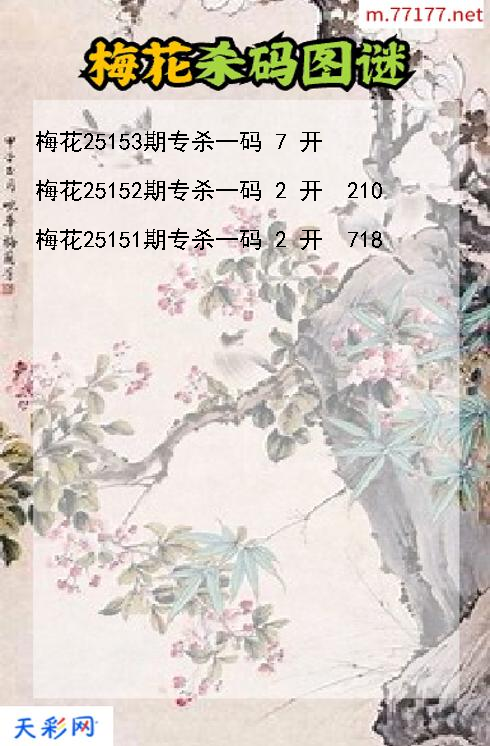 m.77177.net
梅花杀码图谜
梅花25153期专杀一码 7 开
梅花25152期专杀一码 2 开 210
梅花25151期专杀一码 2 开 718
天彩网